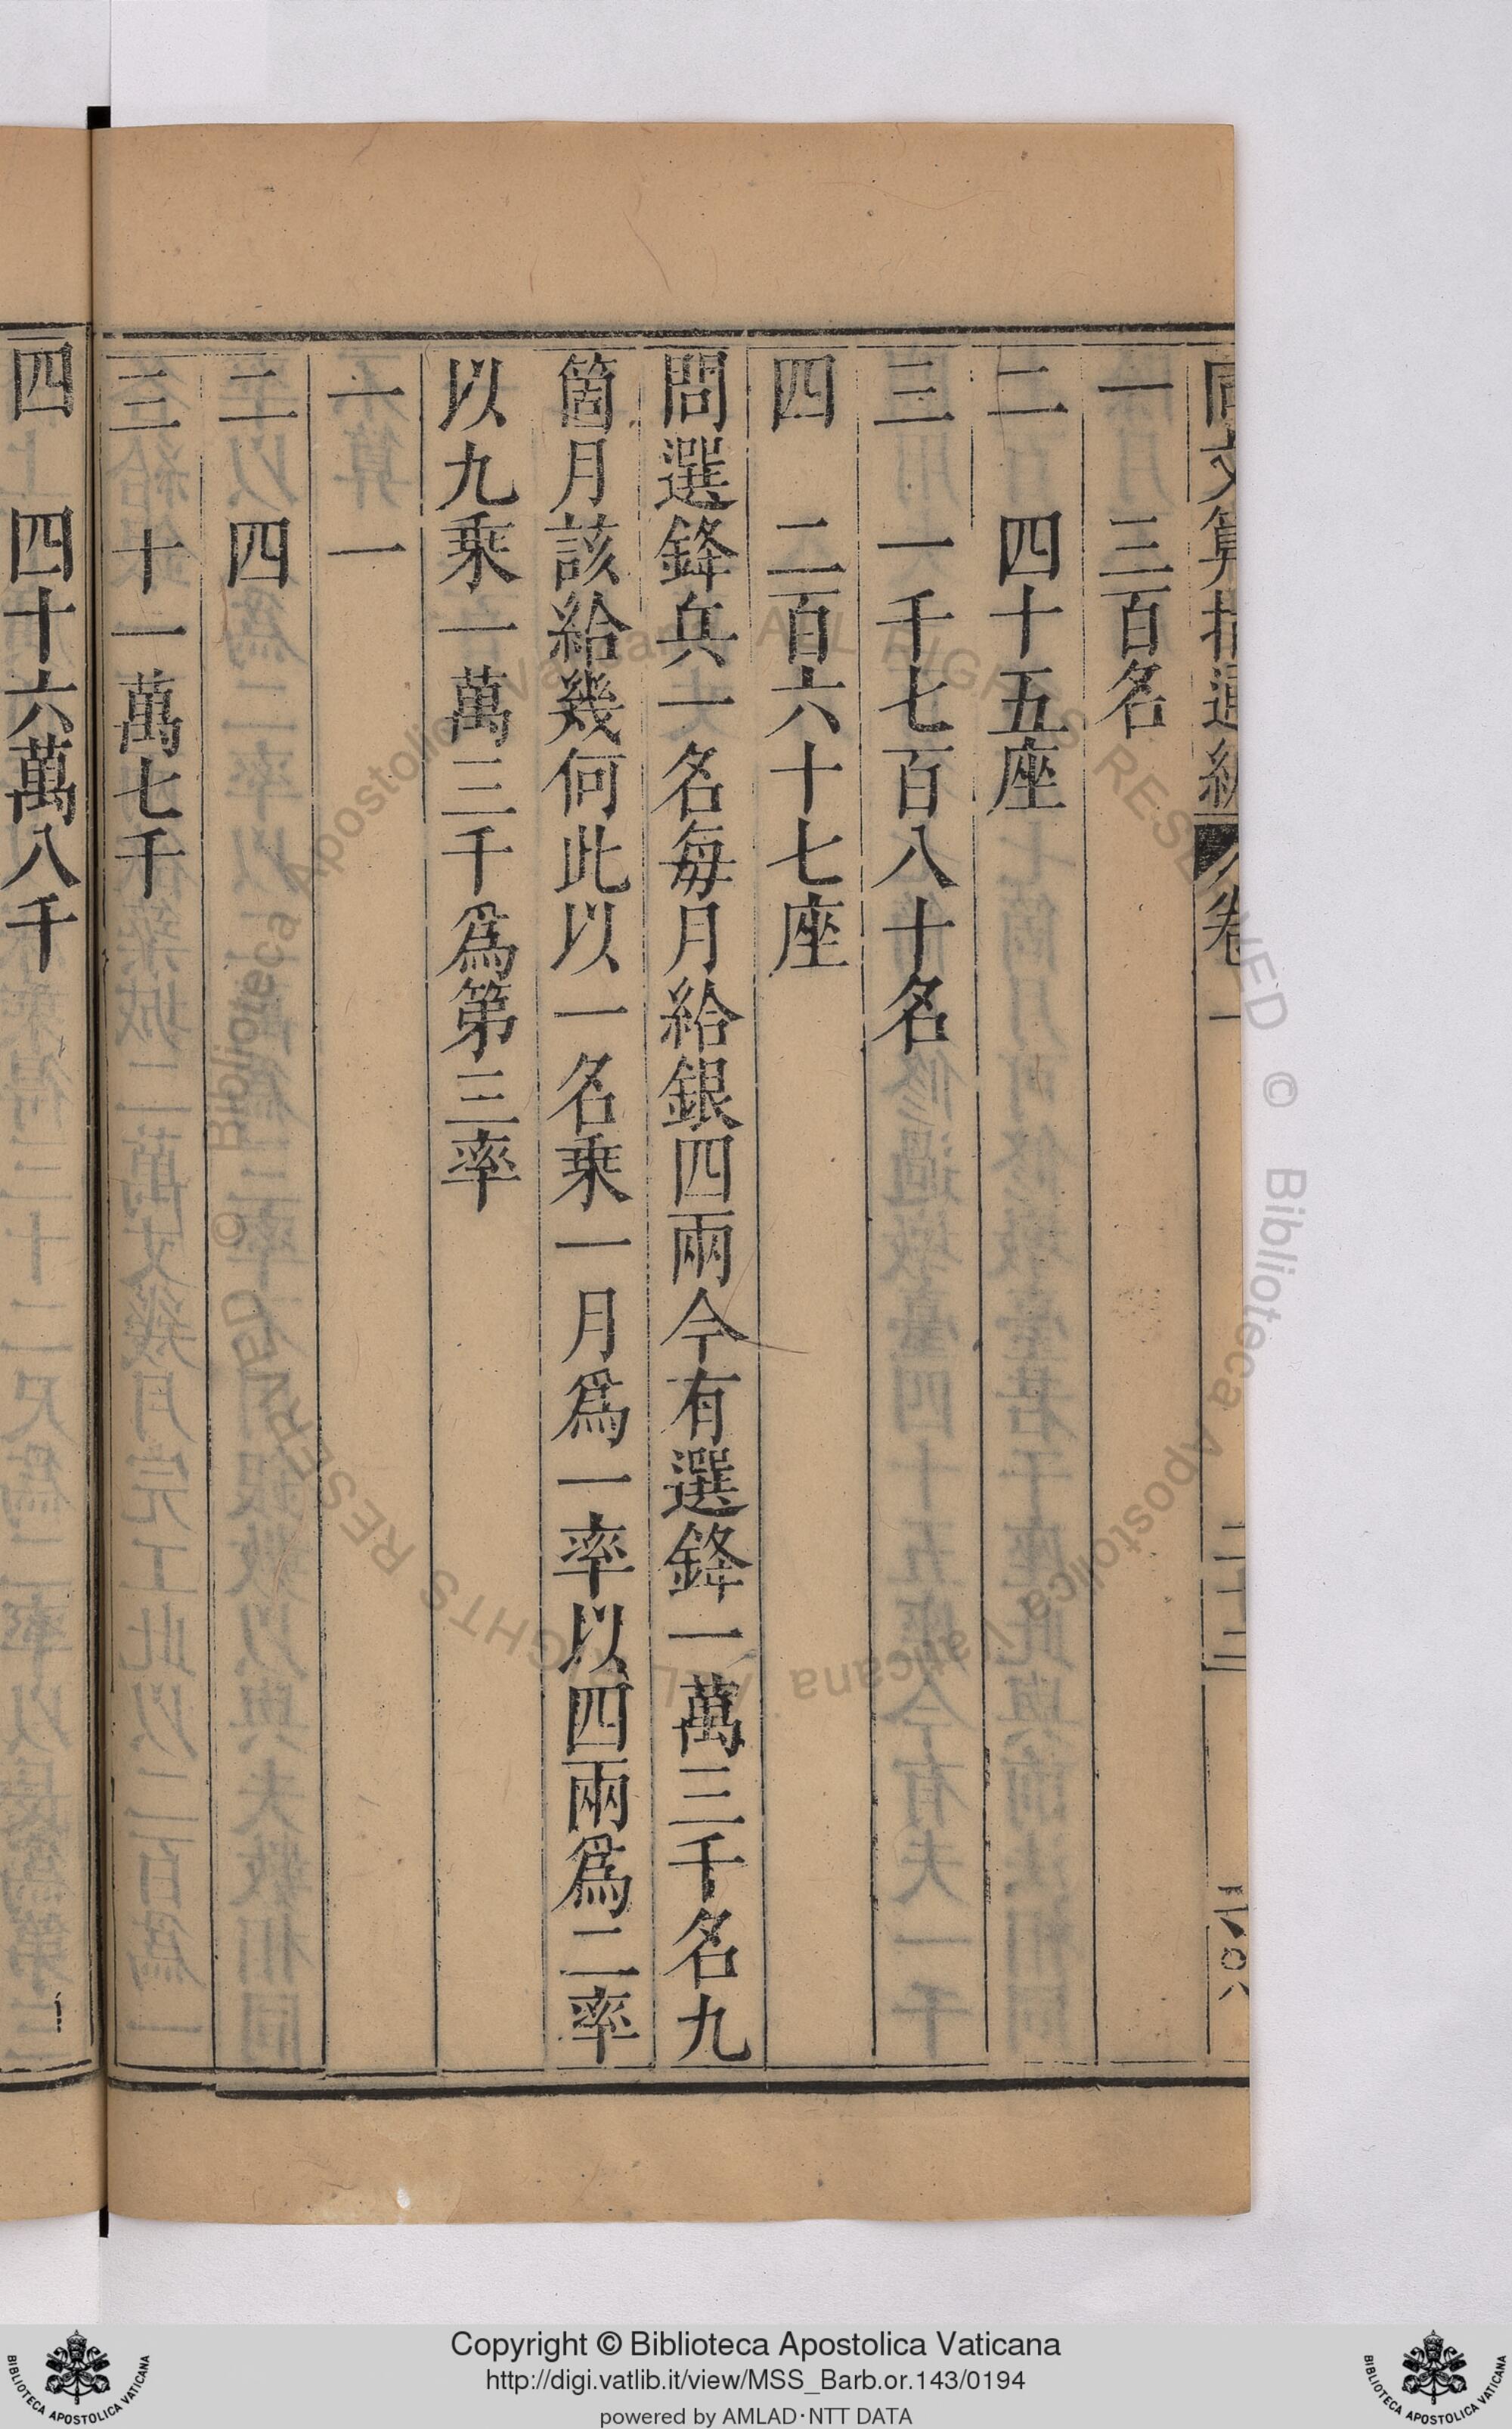 同文算指通編 卷一 二十二
一 三百名
二 四十五座
三 一千七百八十名
四 二百六十七座
問選鋒兵一名每月給銀四兩今有選鋒一萬三千名九
箇月該給幾何此以一名乘一月爲一率以四兩爲二率
以九乘一萬三千爲第三率
一 一
二 四
三 十一萬七千
四 四十六萬八千
Copyright © Biblioteca Apostolica Vaticana
http://digi.vatlib.it/view/MSS_Barb.or.143/0194
powered by AMLAD·NTT DATA
BIBLIOTECA APOSTOLICA VATICANA
BIBLIOTECA APOSTOLICA VATICANA
© Biblioteca Apostolica Vaticana ALL RIGHTS RESERVED © Biblioteca Apostolica Vaticana ALL RIGHTS RESERVED